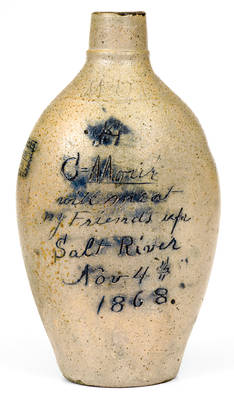 C. Moair
will meet
my Friends up
Salt River
Nov 4th
1868.